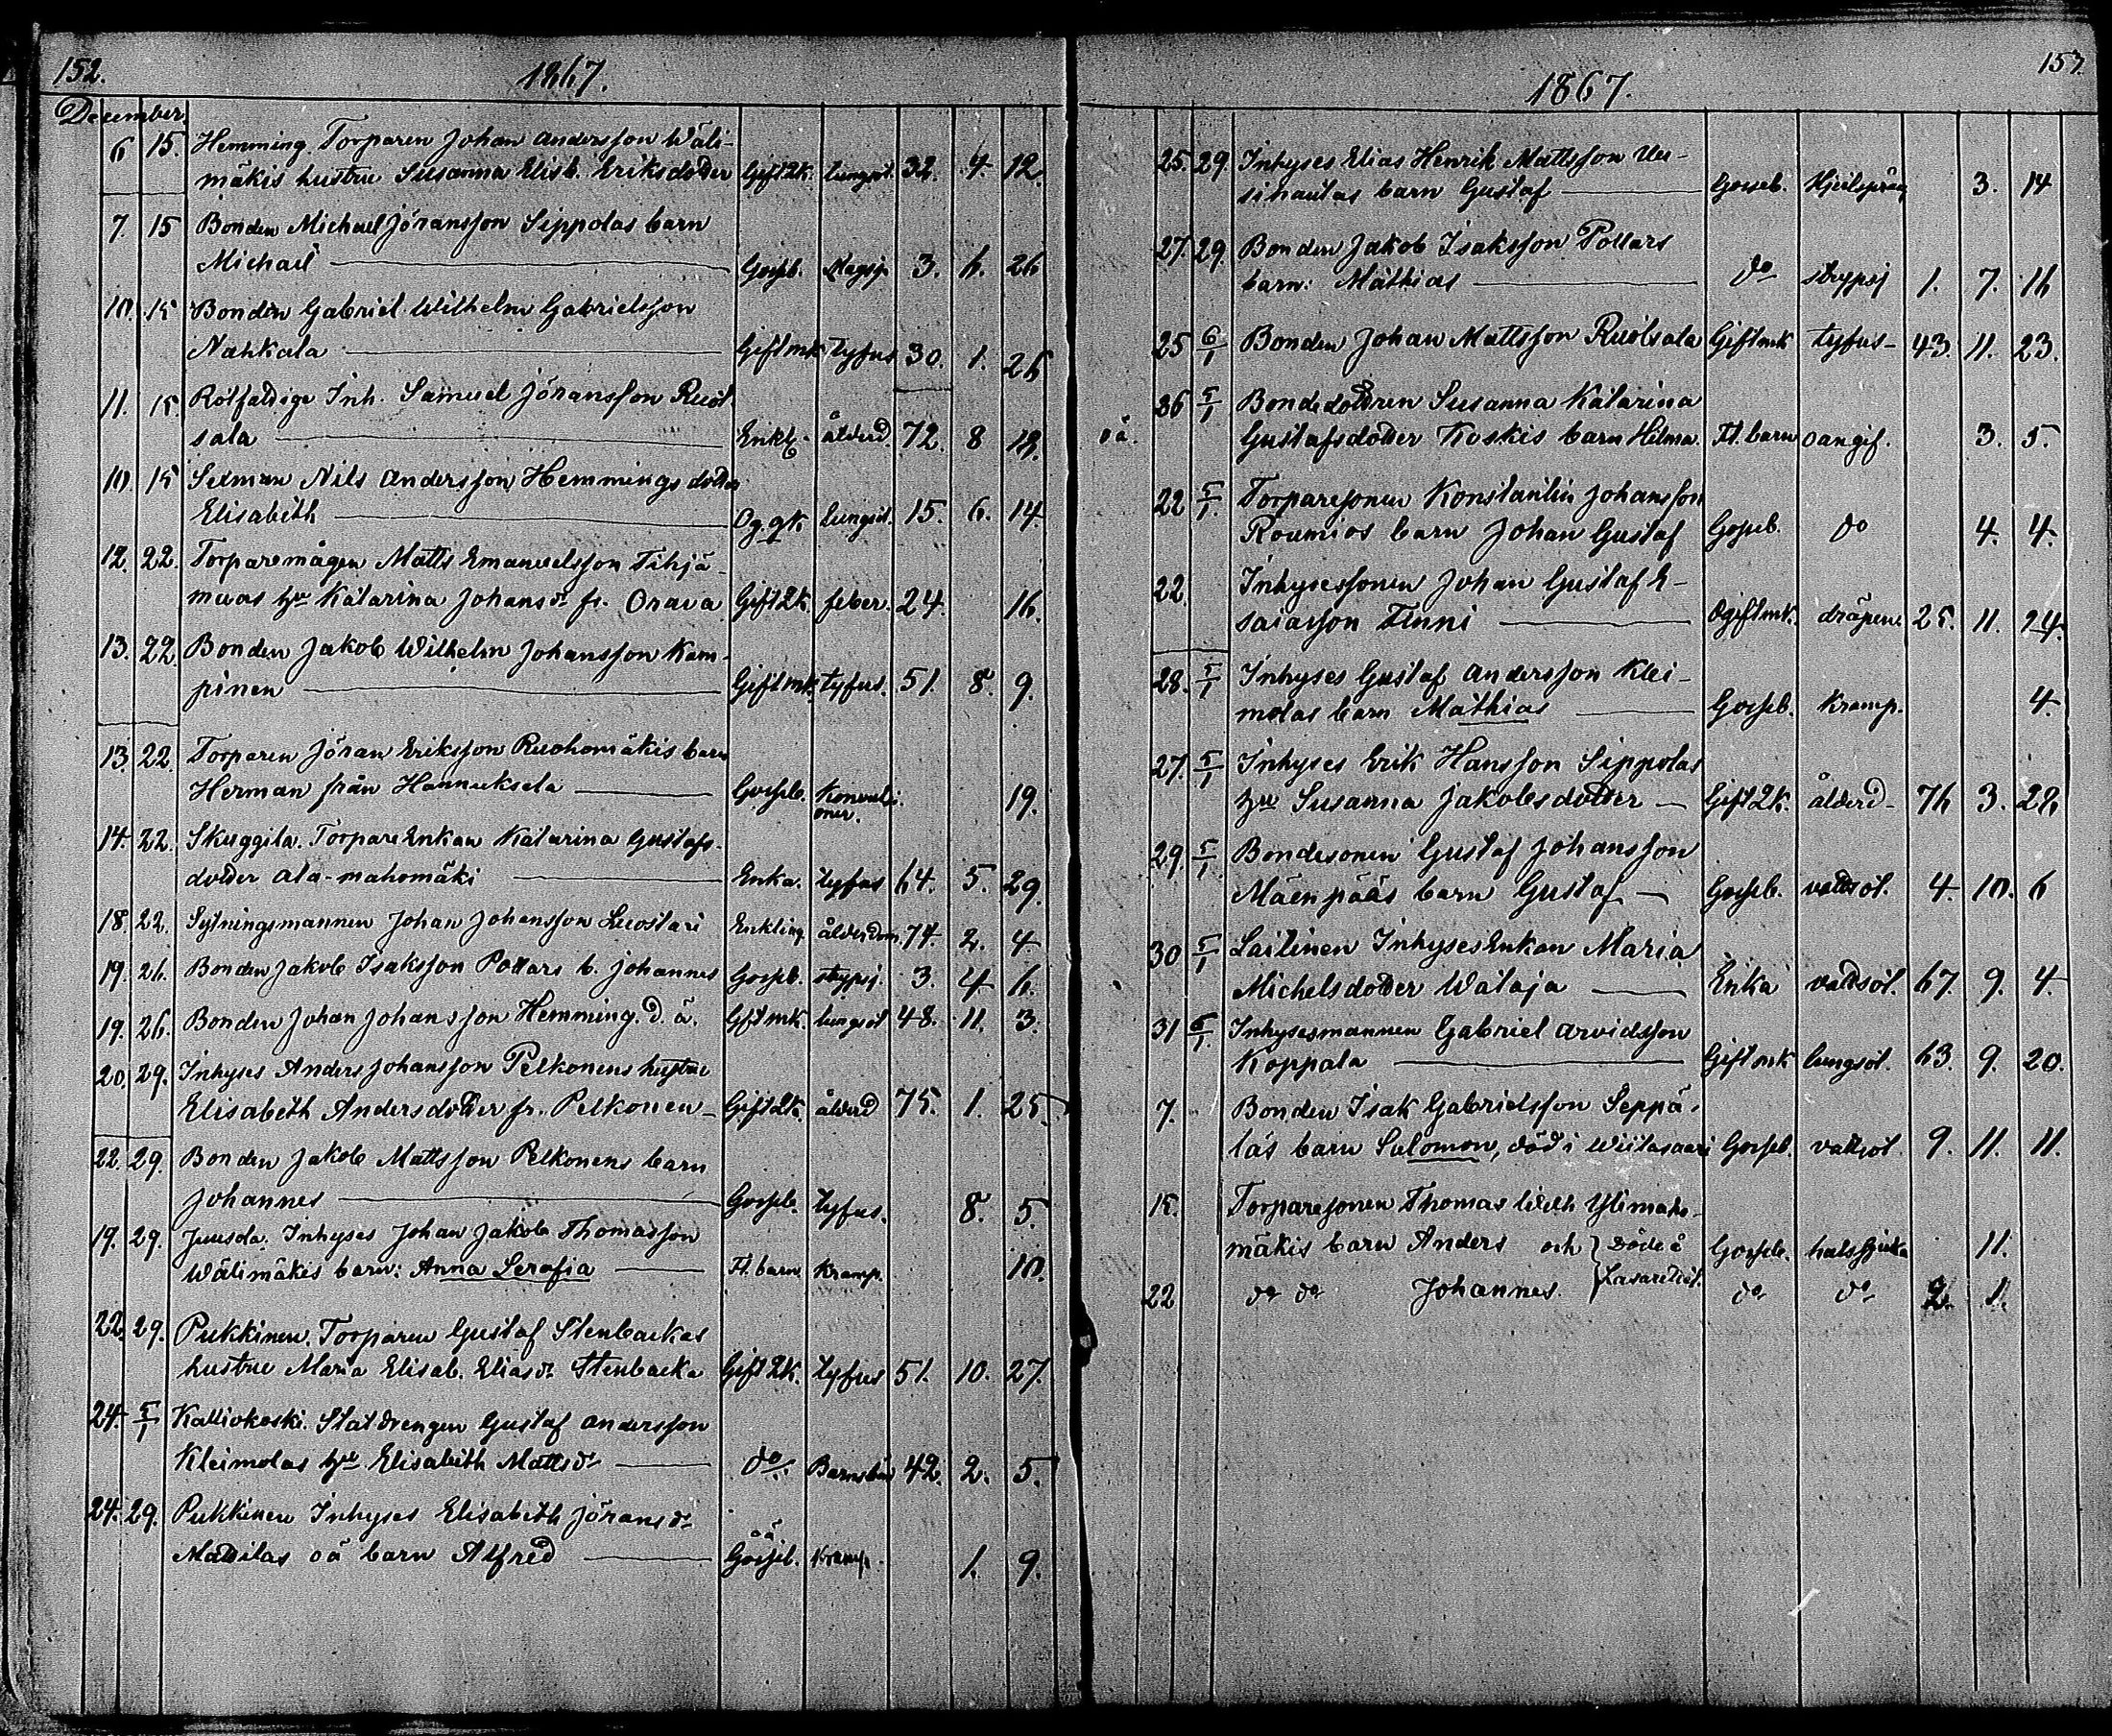 152.
1867.
December.
6 15. Hemming. Torparen Johan Andersson Wäli-
mäkis hustru Susanna Elisb. Eriksdotter Gift qk. lungsot. 32. 4. 12.
7. 15 Bonden Michael Jöransson Sippolas barn
Michaël Gosseb. Magsj. 3. 6. 26
10. 15 Bonden Gabriel Wilhelm Gabrielsson
Nahkala Gift mk tyfus 30. 1. 26
11. 15. Rotfaldige Inh. Samuel Jöransson Ruot-
sala Enkl. ålderd. 72. 8 18.
10. 15 Sexman Nils Andersson Hemmings dotter
Elisabeth Og. qk lungsot. 15. 6. 14.
12. 22. Torparemågen Matts Emanuelsson Tihjä-
maas hu Katarina Johansdr fr. Orava Gift qk feber. 24. 16.
13. 22. Bonden Jakob Wilhelm Johansson Kam-
pinen Gift mk. tyfus. 51. 8. 9.
13. 22. Torparen Jöran Eriksson Ruohomäkis barn
Herman från Hannuksela Gosseb. Konvulsi-
oner. 19.
14. 22. Skuggila. Torpare Enkan Katarina Gustafs-
dotter Ala-mahomäki Enka. tyfus 64. 5. 29.
18. 22. Sytningsmannen Johan Johansson Luostari Enkling ålderdom. 74. 2. 4
19. 26. Bonden Jakob Isaksson Pottars b. Johannes Gosseb. strypsj. 3. 4 6.
19. 26. Bonden Johan Johansson Hemming. d. ä. Gift mk. lungsot 48. 11. 3.
20. 29. Inhyses Anders Johansson Pelkonens hustru
Elisabeth Andersdotter fr. Pelkonen Gift qk. ålderd 75. 1. 25.
22. 29. Bonden Jakob Mattsson Pelkonens barn
Johannes Gosseb. tyfus. 8. 5.
19. 29. Juusola. Inhyses Johan Jakob Thomasson
Wälimäkis barn: Anna Serafia Fl. barn Kramp. 10.
22 29. Pukkinen. Torparen Gustaf Stenbackas
hustru Maria Elisab. Eliasdr Stenbacka Gift qk. tyfus 51. 10. 27.
24. 5/1 Kalliokoski. Statdrengen Gustaf Andersson
Kleimolas hu Elisabeth Mattsdr do Barnsbörd 42. 2. 5.
24. 29. Pukkinen Inhyses Elisabeth Jöransdr
Mattilas oä barn Alfred oä Gosseb. Kramp. 1. 9.
153.
1867.
25. 29. Inhyses Elias Henrik Mattsson Uu-
sihautas barn Gustaf Gosseb. Hjertsprång 3. 14
27. 29. Bonden Jakob Isaksson Pottars
barn: Mathias do strypsj 1. 7. 16
25 6/1 Bonden Johan Mattsson Ruotsala Gift mk tyfus 43. 11. 23.
26 5/1 Bondedottren Susanna Katarina
oä. Gustafsdotter Koskis barn Hilma. Fl. barn oangif. 3. 5.
22 5/1. Torparesonen Konstantin Johansson
Roumios barn Johan Gustaf Gosseb. do 4. 4.
22. Inhysessonen Johan Gustaf E-
saiasson Finni Ogift mk. dräpen 25. 11. 24.
28. 5/1 Inhyses Gustaf Andersson Klei-
molas barn Mathias Gosseb. Kramp. 4.
27. 5/1 Inhyses Erik Hansson Sippolas
hu Susanna Jakobsdotter Gift qk. ålderd 76 3. 28
29. 5/1 Bondesonen Gustaf Johansson
Mäenpääs barn Gustaf Gosseb. vattsot. 4. 10. 6
30 5/1 Laitinen Inhyses Enkan Maria
Michelsdotter Wataja Enka vattsot. 67. 9. 4.
31 6/1. Inhysesmannen Gabriel Arvidsson
Koppala Gift mk lungsot. 63. 9. 20.
7. Bonden Isak Gabrielsson Seppä-
läs barn Salomon, död i Wiitasaari Gosseb. vattsot. 9. 11. 11.
15. Torparesonen Thomas Wilh Ylimaho-
mäkis barn Anders och } Döde å Gosseb. halssjuka 11.
Lasarettet.
22 do do Johannes. do do 2. 1.